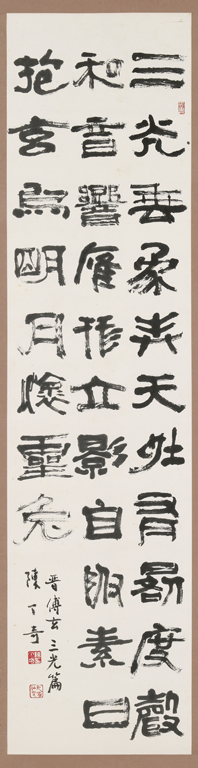 三光垂象表天地有晷度聲
和音響應形立影自附素日
抱玄烏明月懷靈兔
晉傅玄三光篇
陳丁奇